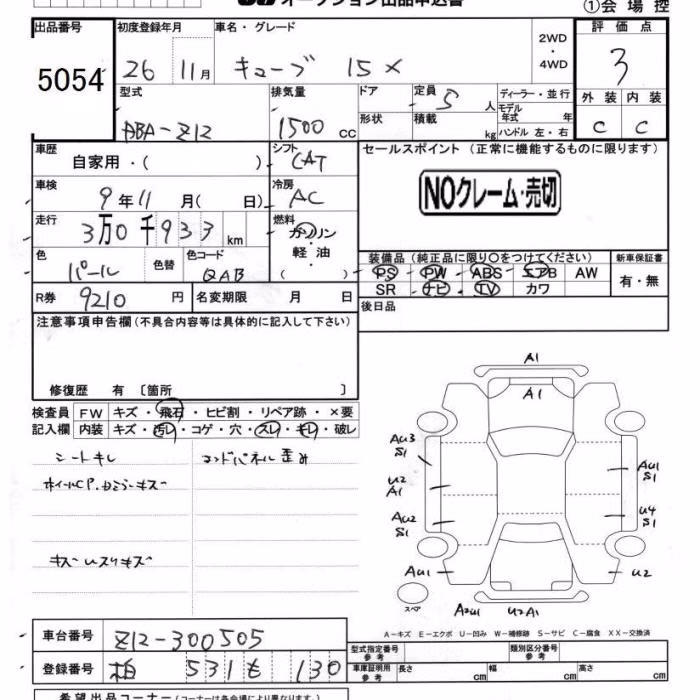 オークション出品申込書
①会場控
出品番号
5054
初度登録年月
26 11月
車名・グレード
キューブ 15X
2WD
・
4WD
評価点
3
型式
DBA-Z12
排気量
1500 cc
ドア
定員
5 人
ディーラー・並行
モデル年式 年
形状
積載 kg
ハンドル 左・右
外装 内装
C C
車歴
自家用・( )
シフト
CAT
セールスポイント (正常に機能するものに限ります)
NOクレーム・売切
車検
9年11月( 日)
冷房
AC
走行
3万0千933 km
燃料
ガソリン
軽油
( )
色
パール
色替
色コード
QAB
装備品 (純正品に限り○をつけてください)
PS PW ABS エアB AW
SR ナビ TV カワ
新車保証書
有・無
R券 9210 円
名変期限 月 日
後日品
注意事項申告欄(不具合内容等は具体的に記入して下さい)
修復歴 有 〔箇所 〕
検査員 FW キズ・飛石・ヒビ割・リペア跡・×要
記入欄 内装 キズ・汚レ・コゲ・穴・スレ・キレ・破レ
シートキレ
コンドパネル歪み
キズUスリキズ
A1
A1
AU3
S1
U2
A1
AU2
S1
AU1
AU1
S1
U4
S1
U2
スペア
A2U1 U2A1
A-キズ E-エクボ U-凹み W-補修跡 S-サビ C-腐食 XX-交換済
車台番号 Z12-300505
登録番号 柏 531 も 130
型式指定番号
参考
類別区分番号
参考
車庫証明用
参考
長さ cm 幅 cm 高さ cm
希望出品コーナー(コーナーは各会場により異なります。)